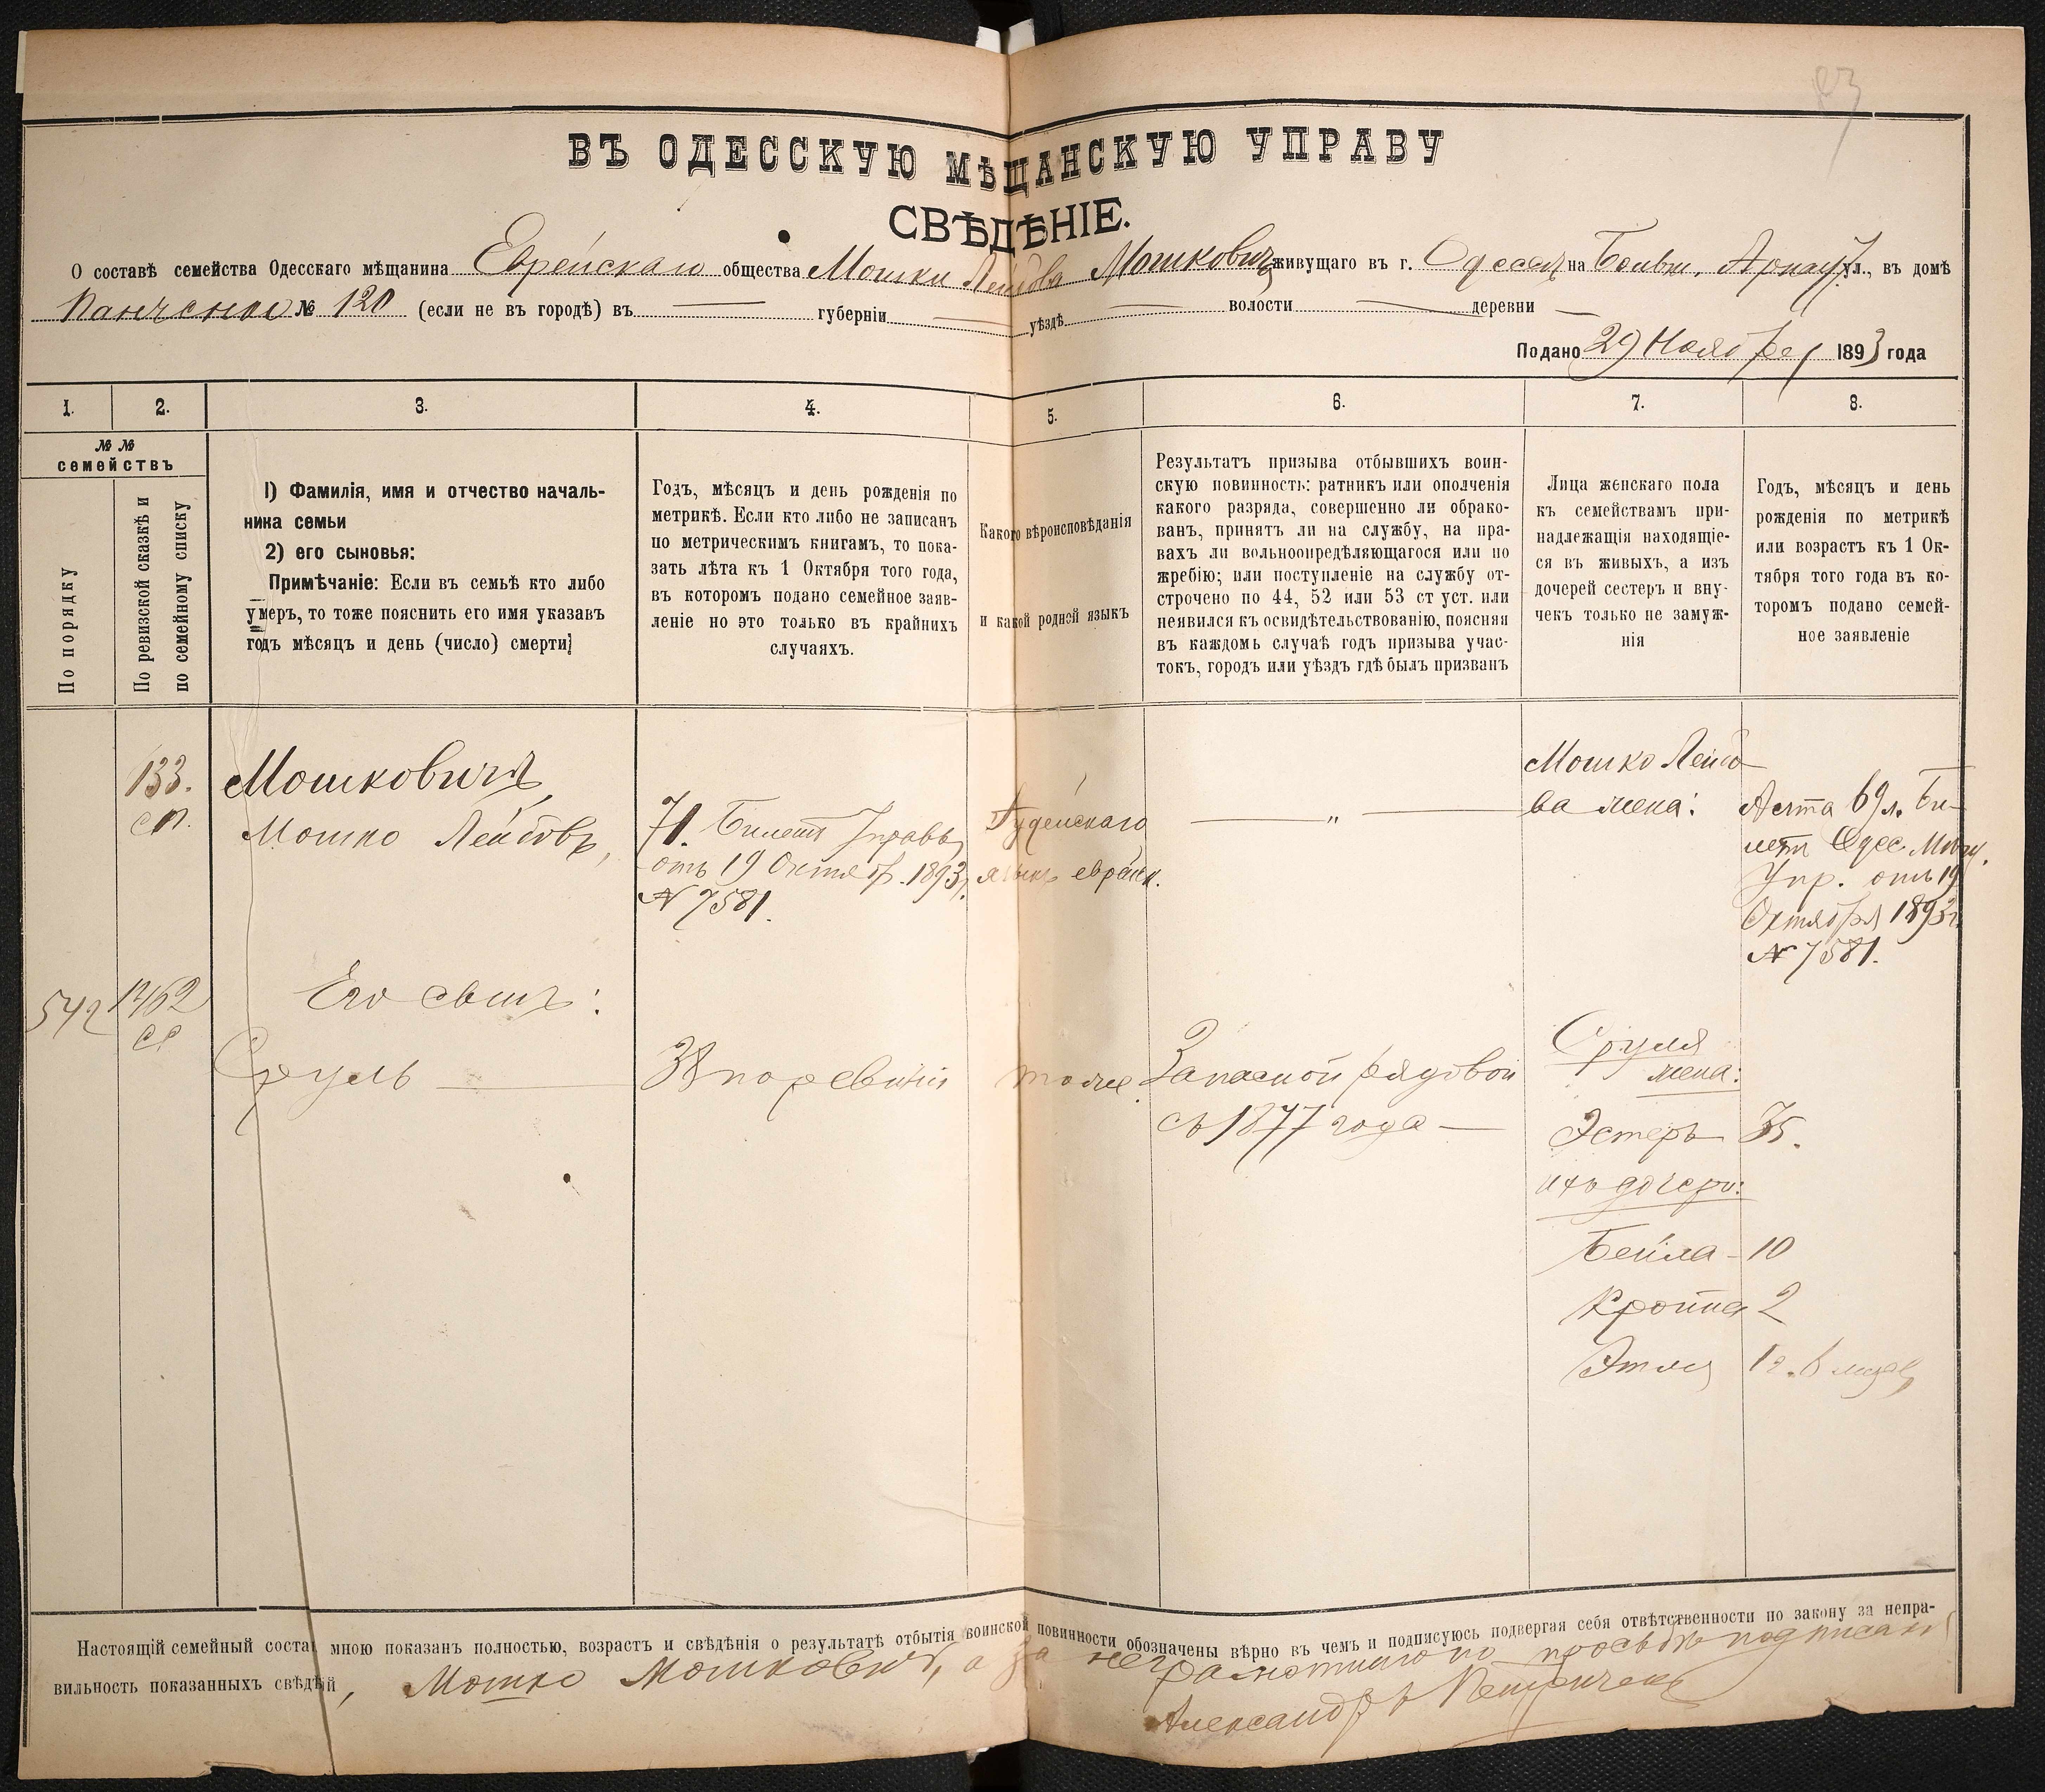 83
ВЪ ОДЕССКУЮ МѢЩАНСКУЮ УПРАВУ
СВѢДѢНІЕ.
О составѣ семейства Одесскаго мѣщанина Еврейскаго общества Мошки Лейбова Мошковичъ живущаго въ г. Одессѣ на Больш. Арнаут. ул., въ домѣ
Панченко № 120 (если не въ городѣ) въ — губерніи — уѣздѣ — волости — деревни —
Подано 29 Ноября 1893 года
1. 2. 3. 4. 5. 6. 7. 8.
№ №
семействъ
По порядку
По ревизской сказкѣ и
по семейному списку
1) Фамилія, имя и отчество началь-
ника семьи
2) его сыновья:
Примѣчаніе: Если въ семьѣ кто либо
умеръ, то тоже пояснить его имя указавъ
годъ мѣсяцъ и день (число) смерти]
Годъ, мѣсяцъ и день рожденія по
метрикѣ. Если кто либо не записанъ
по метрическимъ книгамъ, то пока-
зать лѣта къ 1 Октября того года,
въ которомъ подано семейное заяв-
леніе но это только въ крайнихъ
случаяхъ.
Какого вѣроисповѣданія
и какой родной языкъ
Результатъ призыва отбывшихъ воин-
скую повинность: ратникъ или ополченія
какого разряда, совершенно ли обрако-
ванъ, принятъ ли на службу, на пра-
вахъ ли вольноопредѣляющагося или по
жребію; или поступленіе на службу от-
строчено по 44, 52 или 53 ст уст. или
неявился къ освидѣтельствованію, поясняя
въ каждомъ случаѣ годъ призыва учас-
токъ, городъ или уѣздъ гдѣ былъ призванъ
Лица женскаго пола
къ семействамъ при-
надлежащія находящіе-
ся въ живыхъ, а изъ
дочерей сестеръ и вну-
чекъ только не замуж-
нія
Годъ, мѣсяцъ и день
рожденія по метрикѣ
или возрастъ къ 1 Ок-
тября того года въ ко-
торомъ подано семей-
ное заявленіе
133.
сп.
Мошковичъ
Мошко Лейбовъ,
71. Билетъ Управы
отъ 19 Октябр. 1893 г.
№ 7581.
Іудейскаго
языкъ еврейск.
— „ —
Мошко Лейбо-
ва жена:
69 л. Би-
летъ Одес. Мѣщ.
Упр. отъ 19
Октября 1893 г.
№ 7581.
542
1462
сс
Его сынъ:
Сруль —
38 по ревизіи
тоже.
Запасной рядовой
съ 1877 года —
Сруля
жена:
Эстеръ 35.
ихъ дочери:
Бейла - 10
Кройна 2
Этля 1 г. 6 мѣсяц.
Настоящій семейный составъ мною показанъ полностью, возрастъ и свѣдѣнія о результатѣ отбытія воинской повинности обозначены вѣрно въ чемъ и подписуюсь подвергая себя отвѣтственности по закону за непра-
вильность показанныхъ свѣдѣній, Мошко Мошковичъ, а за неграмотнаго по просьбѣ подписалъ
Александръ